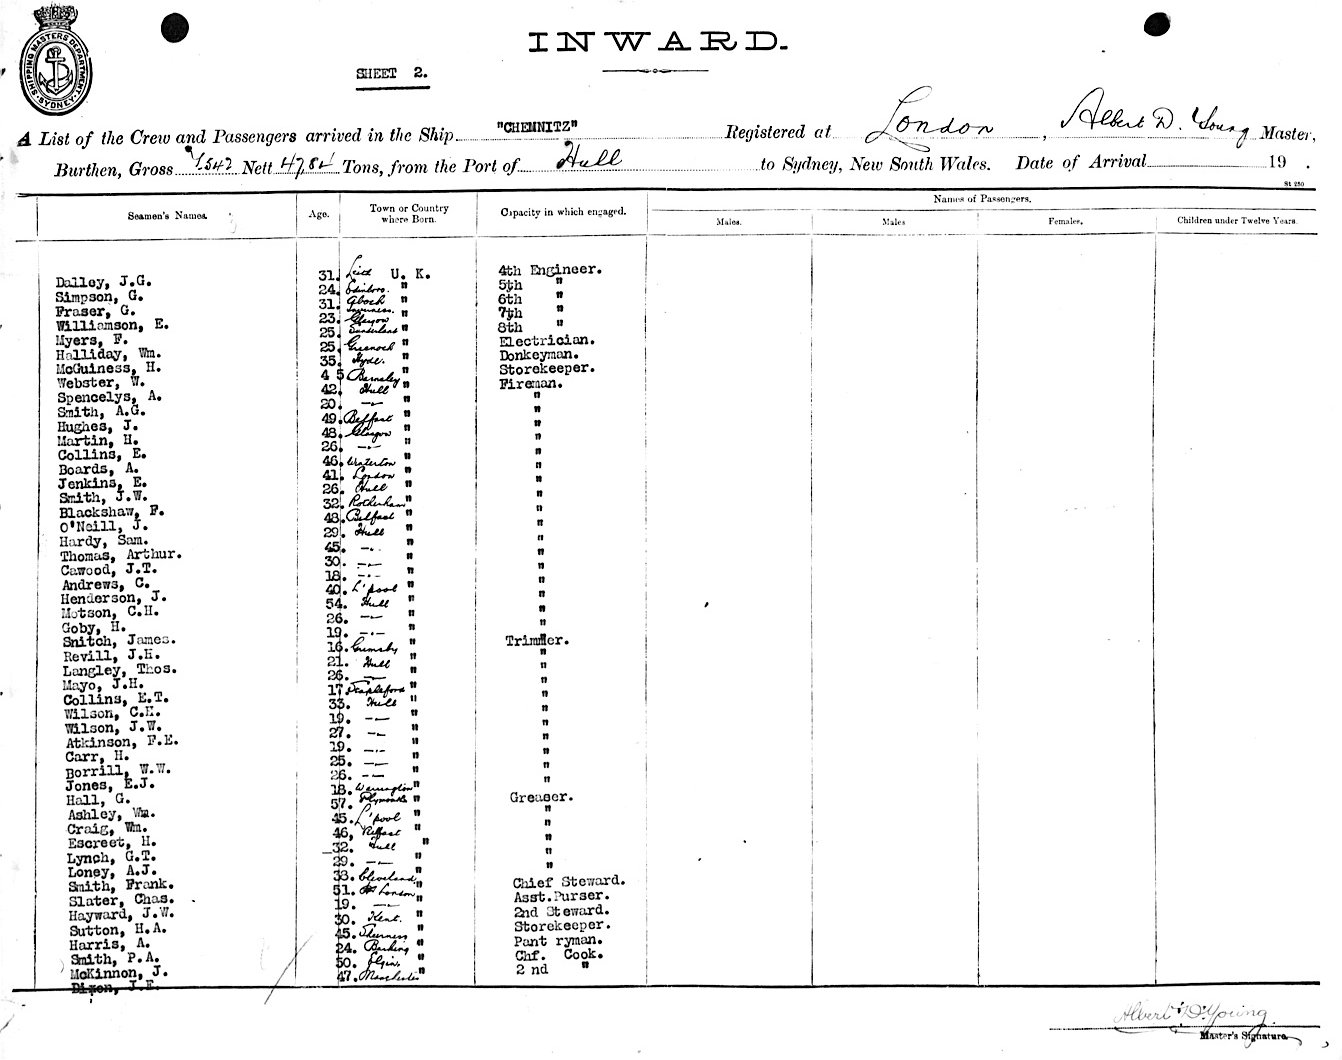 SHIPPING MASTERS DEPARTMENT SYDNEY
INWARD.
SHEET 2.
A List of the Crew and Passengers arrived in the Ship "CHEMNITZ" Registered at London, Albert D. Young Master,
Burthen, Gross 7542 Nett 4784 Tons, from the Port of Hull to Sydney, New South Wales. Date of Arrival 19 .
St 250
Seamen's Names. Age. Town or Country where Born. Capacity in which engaged. Names of Passengers.
Males. Males Females. Children under Twelve Years.
Dalley, J.G. 31. Leith U. K. 4th Engineer.
Simpson, G. 24. Edinboro. " 5th "
Fraser, G. 31. Inverness. " 6th "
Williamson, E. 23. Glasgow " 7th "
Myers, F. 25. Sunderland " 8th "
Halliday, Wm. 25. Greenock " Electrician.
McGuiness, H. 35. Hyde. " Donkeyman.
Webster, W. 4 5 Barnsley " Storekeeper.
Spencelys, A. 42. Hull " Fireman.
Smith, A.G. 20. -"- " "
Hughes, J. 49. Belfast " "
Martin, H. 48. Glasgow " "
Collins, E. 26. -"- " "
Boards, A. 46. Waterton " "
Jenkins, E. 41. London " "
Smith, J.W. 26. Hull " "
Blackshaw, F. 32. Rotherham " "
O'Neill, J. 48. Belfast " "
Hardy, Sam. 29. Hull " "
Thomas, Arthur. 45. -"- " "
Cawood, J.T. 30. -"- " "
Andrews, C. 18. -"- " "
Henderson, J. 40. L'pool " "
Motson, C.H. 54. Hull " "
Goby, H. 26. -"- " "
Snitch, James. 19. -"- " "
Revill, J.H. 16. Grimsby " Trimmer.
Langley, Thos. 21. Hull " "
Mayo, J.H. 26. -"- " "
Collins, E.T. 17 Stapleford " "
Wilson, C.H. 33. Hull " "
Wilson, J.W. 19. -"- " "
Atkinson, F.E. 27. -"- " "
Carr, H. 19. -"- " "
Borrill, W.W. 25. -"- " "
Jones, E.J. 26. -"- " "
Hall, G. 18. Warrington " "
Ashley, Wm. 57. Plymouth " Greaser.
Craig, Wm. 45. L'pool " "
Escreet, H. 46, Belfast " "
Lynch, G.T. 32. Hull " "
Loney, A.J. 29. -"- " "
Smith, Frank. 38. Cleveland " "
Slater, Chas. 51. London " Chief Steward.
Hayward, J.W. 19. -"- " Asst.Purser.
Sutton, H.A. 30. Kent. " 2nd Steward.
Harris, A. 45. Sheerness " Storekeeper.
Smith, P.A. 24. Barking " Pant ryman.
McKinnon, J. 50. Elgin. " Chf. Cook.
Dixon, J.E. 47. Manchester " 2 nd "
Albert D. Young
Master's Signature.